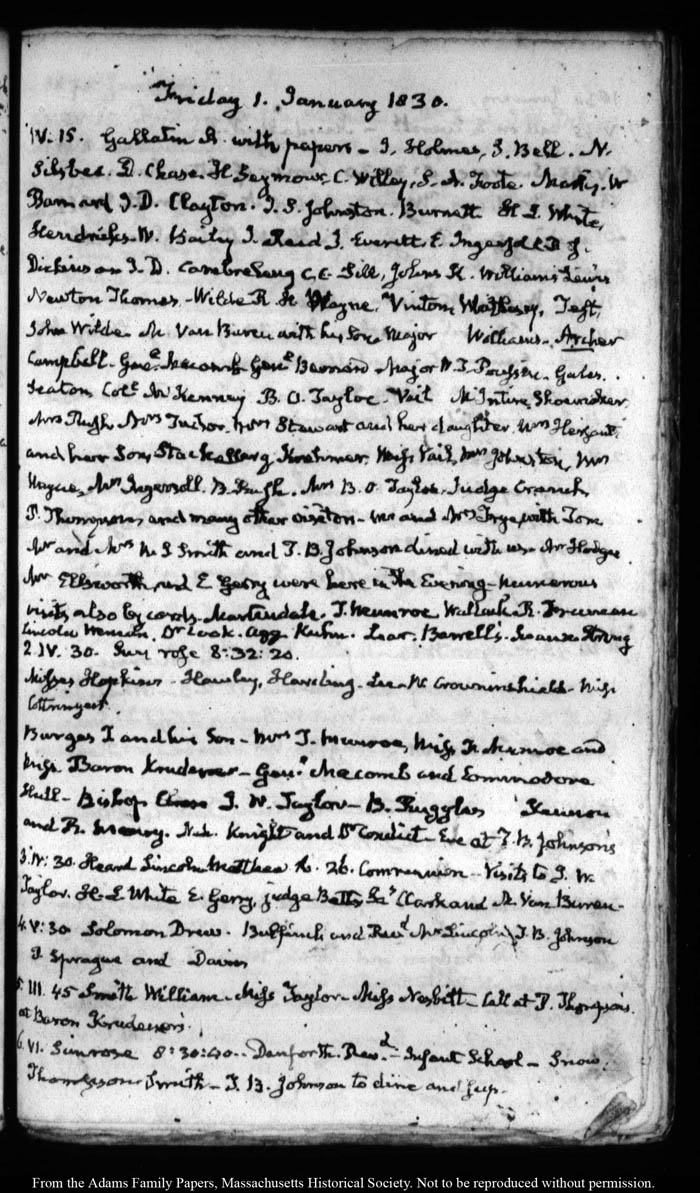 Friday 1. January 1830.
IV. 15. Gallatin A. with papers – J. Holmes, S. Bell. N.
Silsbee. D. Chase. H Seymour, C. Willey, S. A. Foote. Marks, W
Barnard J. D. Clayton. J. S. Johnston. Burnett. H L. White,
Hendricks. W. Bailey J. Reed J. Everett, E. Ingersoll
Dickinson J. D. Cambreleng C. C. Lewis
Newton Thomas. Wilde R. H. Wayne. Vinton, Taft,
John Wilde. M. Van Buren with his Son Major Williams. Archer
Campbell. Genl. Macomb Genl. Bernard Major W. T. Poussin. Gales.
Seaton, Coll. McKenney B. O. Tayloe. Vail McIntire, Shoemaker
Mrs Rush, Mrs Tudor, Mrs Stewart and her daughter.
and her Son, Stackelberg Miss Vail, Mrs Johnston, Mrs
Hayne, Mrs Ingersoll. B. Rush. Mrs B. O Tayloe. Judge Cranch,
P. Thompson, and many other visitors – Mr and Mrs Frye, with Tom
Mr and Mrs W S Smith and T. B. Johnson dined with us.
Mr Ellsworth, and E Gerry were here in the Evening – numerous
visits also by cards. Martindale. J. Munroe. R. Freeman
Lincoln Dr Cook. Kuhn. Lear. Barrell's. Strong
2. IV. 30. Sun rose 8:32:20.
Misses Hopkins – Hawley, – Lee – Crowninshield – Miss
Burges T and his Son – Mrs J. Munroe, Miss and
Miss Baron Krudener – Genl. Macomb and Commodore
Hull – Bishop J. W. Taylor – B. Ruggles
and R. Knight and Dr Condict – Eve at T. B. Johnson's
3. IV: 30. Heard Lincoln. Matthew 26. 26. Communion – Visits to J. W.
Taylor. H. L White E. Gerry, judge Betts Clark and M. Van Buren –
4. V: 30 Solomon Drew. Bulfinch and Read Mr Lincoln, T. B. Johnson
P Sprague and Davis
5. III. 45 Smith William – Miss Taylor – Miss Nesbitt – Call at P. Thompson's.
at Baron Krudener's.
6. VI. Sunrose 8:30:40. Danforth. Read. – Infant School – Snow.
Thompson Smith – T. B. Johnson to dine and sup.
From the Adams Family Papers, Massachusetts Historical Society. Not to be reproduced without permission.